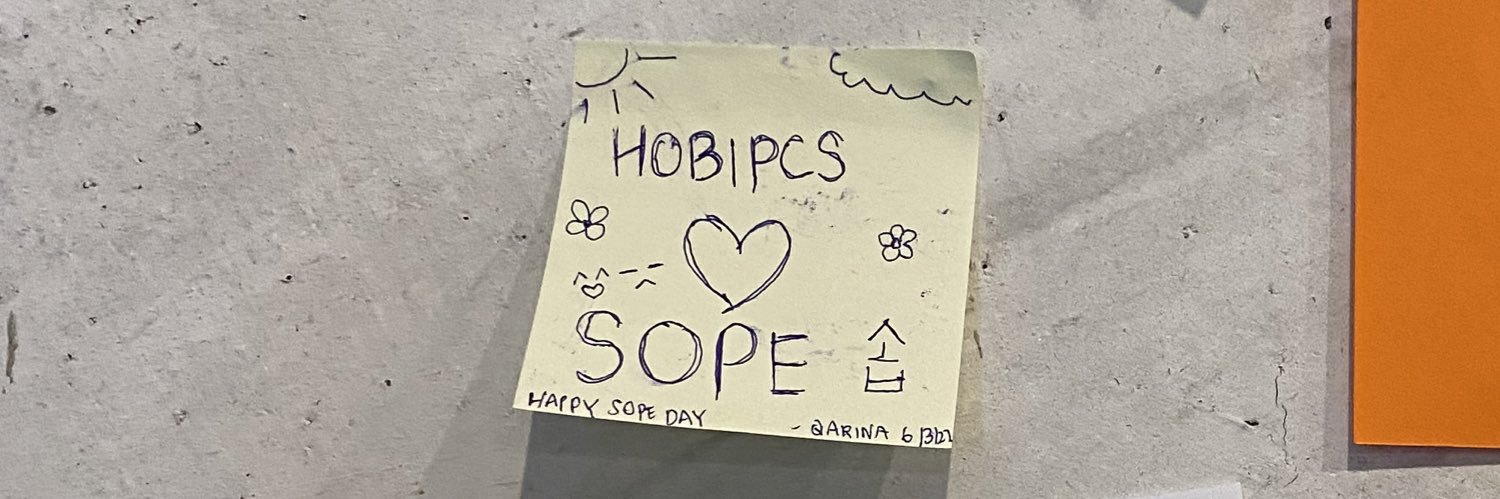 HOBIPCS
SOPE 솝
HAPPY SOPE DAY
- QARINA 6/3/22